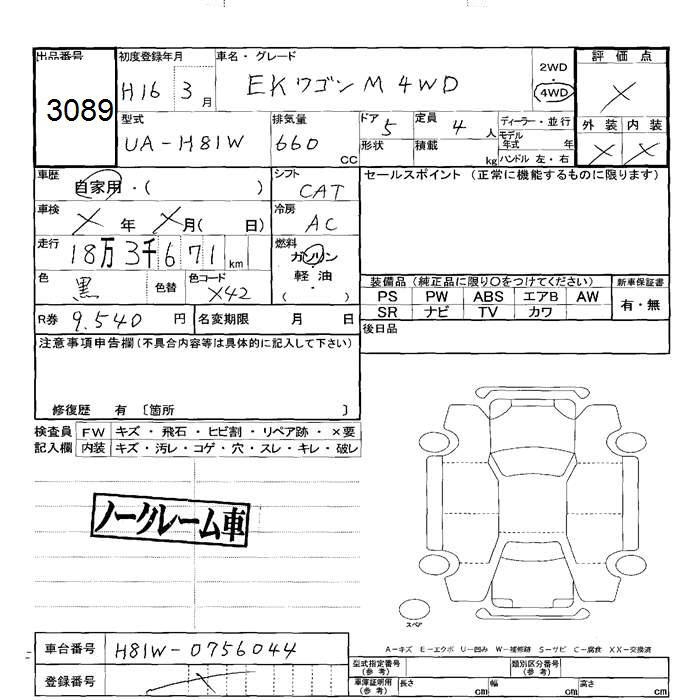 出品番号 初度登録年月 車名・グレード 2WD 評価点
3089 H16 3月 EKワゴン M 4WD 4WD ×
型式 排気量 ドア 定員 ディーラー・並行 外装 内装
UA-H81W 660 CC 5 4人 モデル年式 年 × ×
形状 積載 kg ハンドル 左・右
車歴 シフト セールスポイント (正常に機能するものに限ります)
自家用・( ) CAT
車検 冷房
× 年 × 月( 日) AC
走行 燃料
18万3千671 km ガソリン
色 色替 色コード 軽・油
黒 X42 ( )
装備品 (純正品に限り○をつけてください) 新車保証書
PS PW ABS エアB AW 有・無
SR ナビ TV カワ
R券 9,540 円 名変期限 月 日 後日品
注意事項申告欄 (不具合内容等は具体的に記入して下さい)
修復歴 有 〔箇所 〕
検査員 FW キズ・飛石・ヒビ割・リペア跡・×要
記入欄 内装 キズ・汚レ・コゲ・穴・スレ・キレ・破レ
ノークレーム車
スペア
A-キズ E-エクボ U-凹み W-補修跡 S-サビ C-腐食 XX-交換済
車台番号 H81W-0756044
登録番号 ×
型式指定番号(参考) 類別区分番号(参考)
車庫証明用(参考) 長さ cm 幅 cm 高さ cm